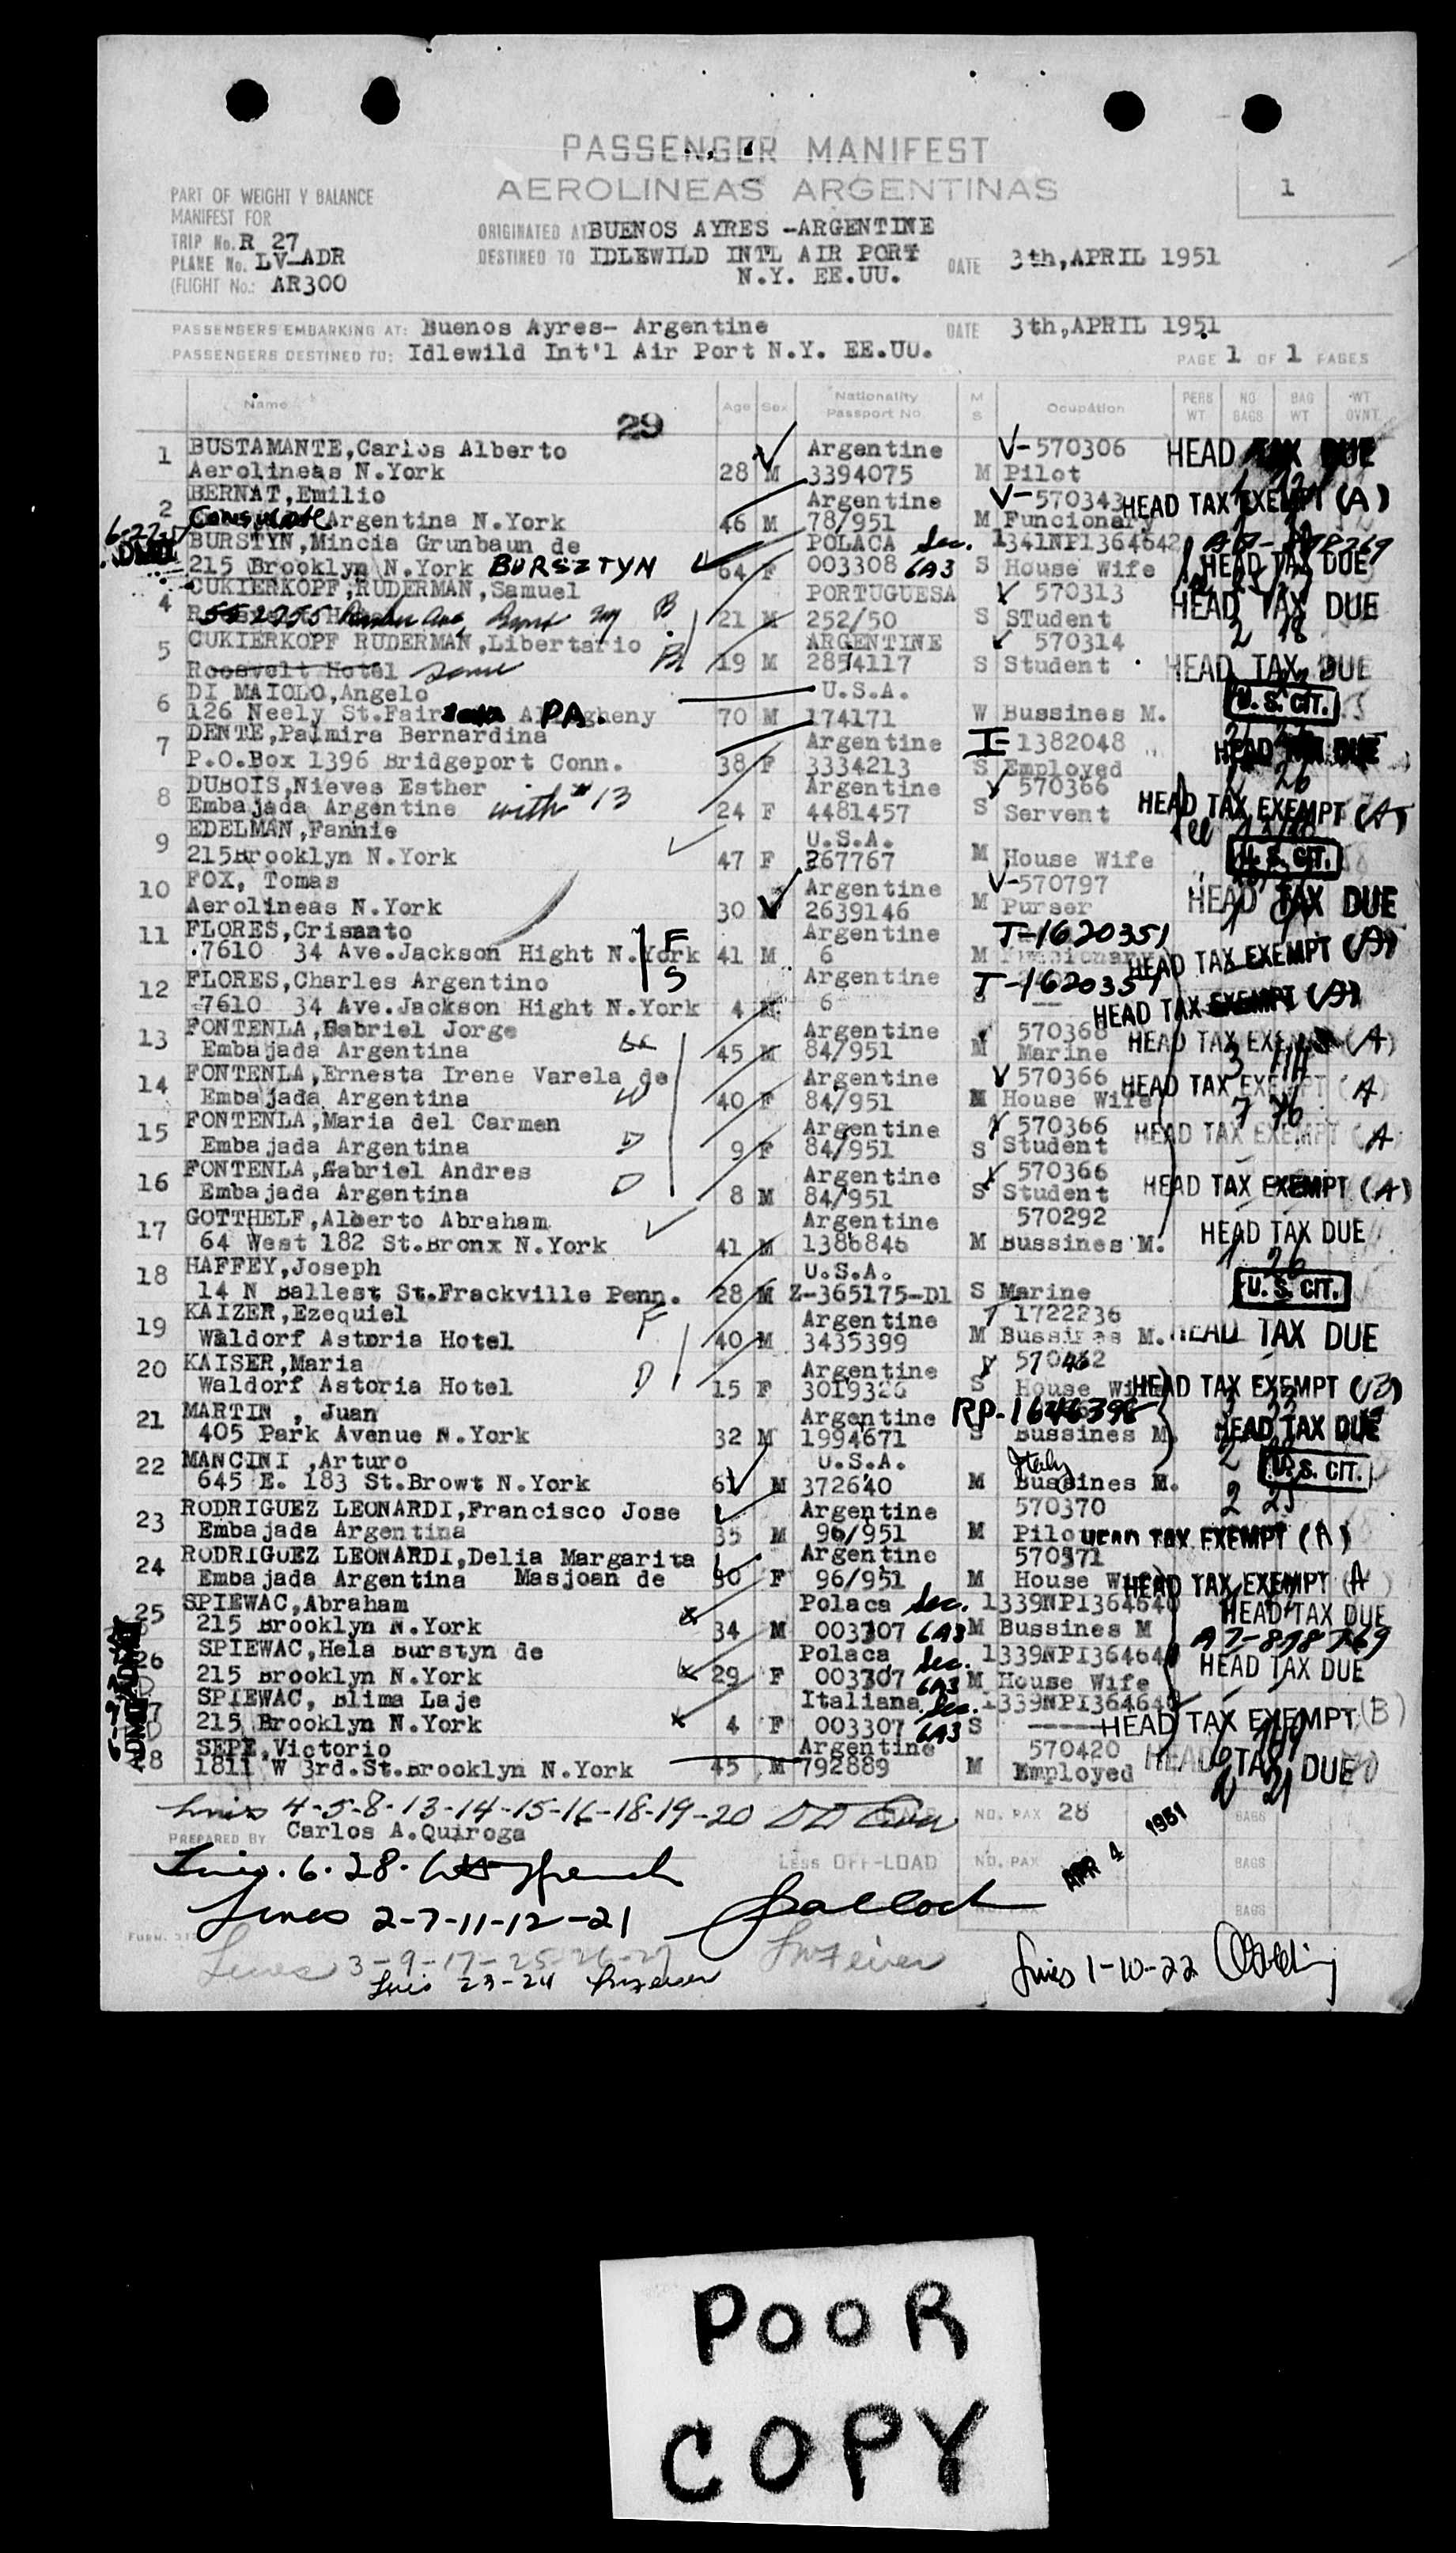 PASSENGER MANIFEST
AEROLINEAS ARGENTINAS
1
PART OF WEIGHT Y BALANCE
MANIFEST FOR
TRIP No. R 27
PLANE No. LV-ADR
(FLIGHT No.: AR300
ORIGINATED AT BUENOS AYRES -ARGENTINE
DESTINED TO IDLEWILD INTL AIR PORT
N.Y. EE.UU.
DATE 3th,APRIL 1951
PASSENGERS EMBARKING AT: Buenos Ayres- Argentine DATE 3th,APRIL 1951
PASSENGERS DESTINED TO: Idlewild Int'l Air Port N.Y. EE.UU. PAGE 1 OF 1 PAGES
Name Age Sex Nationality Passport No. M S Ocupation PERS WT NO BAGS BAG WT WT OVNT
29
1 BUSTAMANTE,Carlos Alberto Argentine V-570306 HEAD TAX DUE
Aerolineas N.York 28 M 3394075 M Pilot
2 BERNAT,Emilio Argentine V-570343 HEAD TAX EXEMPT (A)
Consulate Argentina N.York 46 M 78/951 M Funcionary
BURSTYN,Mincia Grunbaum de POLACA Sec. 1341NPI364642
215 Brooklyn N.York BURSZTYN 64 F 003308 6A3 S House Wife HEAD TAX DUE
4 CUKIERKOPF,RUDERMAN,Samuel PORTUGUESA V 570313 HEAD TAX DUE
21 M 252/50 S STudent
5 CUKIERKOPF RUDERMAN,Libertario ARGENTINE 570314
Roosvelt Hotel same 19 M 2854117 S Student HEAD TAX DUE
6 DI MAIOLO,Angelo U.S.A. U.S. CIT.
126 Neely St. PA. 70 M 174171 W Bussines M.
7 DENTE,Palmira Bernardina Argentine I-1382048 HEAD TAX DUE
P.O.Box 1396 Bridgeport Conn. 38 F 3334213 S Employed
8 DUBOIS,Nieves Esther Argentine V 570366 HEAD TAX EXEMPT (A)
Embajada Argentine with #13 24 F 4481457 S Servent
9 EDELMAN,Fannie U.S.A. U.S. CIT.
215Brooklyn N.York 47 F 267767 M House Wife
10 FOX, Tomas Argentine V-570797 HEAD TAX DUE
Aerolineas N.York 30 M 2639146 M Purser
11 FLORES,Crisanto F Argentine T-1620351
7610 34 Ave.Jackson Hight N.York 41 M 6 M HEAD TAX EXEMPT (A)
12 FLORES,Charles Argentino S Argentine T-1620351
7610 34 Ave.Jackson Hight N.York 4 M 6 S HEAD TAX EXEMPT (A)
13 FONTENLA,Gabriel Jorge Argentine 570368 HEAD TAX EXEMPT (A)
Embajada Argentina 45 M 84/951 M Marine
14 FONTENLA,Ernesta Irene Varela de Argentine V 570366 HEAD TAX EXEMPT (A)
Embajada Argentina W 40 F 84/951 M House Wife
15 FONTENLA,Maria del Carmen Argentine 570366 HEAD TAX EXEMPT (A
Embajada Argentina D 9 F 84/951 S Student
16 FONTENLA,Gabriel Andres Argentine 570366 HEAD TAX EXEMPT (A)
Embajada Argentina D 8 M 84/951 S Student
17 GOTTHELF,Alberto Abraham Argentine 570292 HEAD TAX DUE
64 West 182 St.Bronx N.York 41 M 1386846 M Bussines M.
18 HAFFEY,Joseph U.S.A. U.S. CIT.
14 N Ballest St.Frackville Penn. 28 M Z-365175-D1 S Marine
19 KAIZER,Ezequiel F Argentine 1722236
Waldorf Astoria Hotel 40 M 3435399 M Bussines M. HEAD TAX DUE
20 KAISER,Maria D Argentine 570462
Waldorf Astoria Hotel 15 F 3019326 S House Wife HEAD TAX EXEMPT (B)
21 MARTIN , Juan Argentine RP-1646398
405 Park Avenue N.York 32 M 1994671 S Bussines M. HEAD TAX DUE
22 MANCINI ,Arturo U.S.A. Italy U.S. CIT.
645 E. 183 St.Browt N.York 61 M 372640 M Bussines M.
23 RODRIGUEZ LEONARDI,Francisco Jose Argentine 570370
Embajada Argentina 35 M 96/951 M Pilo HEAD TAX EXEMPT (A)
24 RODRIGUEZ LEONARDI,Delia Margarita Argentine 570371
Embajada Argentina Masjoan de 30 F 96/951 M House Wife HEAD TAX EXEMPT A
25 SPIEWAC,Abraham Polaca Sec. 1339NPI364640 HEAD TAX DUE
215 Brooklyn N.York 34 M 003307 6A3 M Bussines M A7-898769
26 SPIEWAC,Hela Burstyn de Polaca Sec. 1339NPI364640 HEAD TAX DUE
215 Brooklyn N.York 29 F 003307 6A3 M House Wife
27 SPIEWAC, Blima Laje Italiana Sec. 1339NPI364640
215 Brooklyn N.York 4 F 003307 6A3 S HEAD TAX EXEMPT (B)
28 SEPE,Victorio Argentine 570420 HEAD TAX DUE
1811 W 3rd.St.Brooklyn N.York 45 M 792889 M Employed
Lines 4-5-8-13-14-15-16-18-19-20
PREPARED BY Carlos A.Quiroga NO. PAX 28 BAGS
APR 4 1951
Lines. 6-28-
LESS OFF-LOAD NO. PAX BAGS
Lines 2-7-11-12-21
BAGS
Lines 3-9-17-25-26-27
Lines 23-24
Lines 1-10-22
POOR
COPY